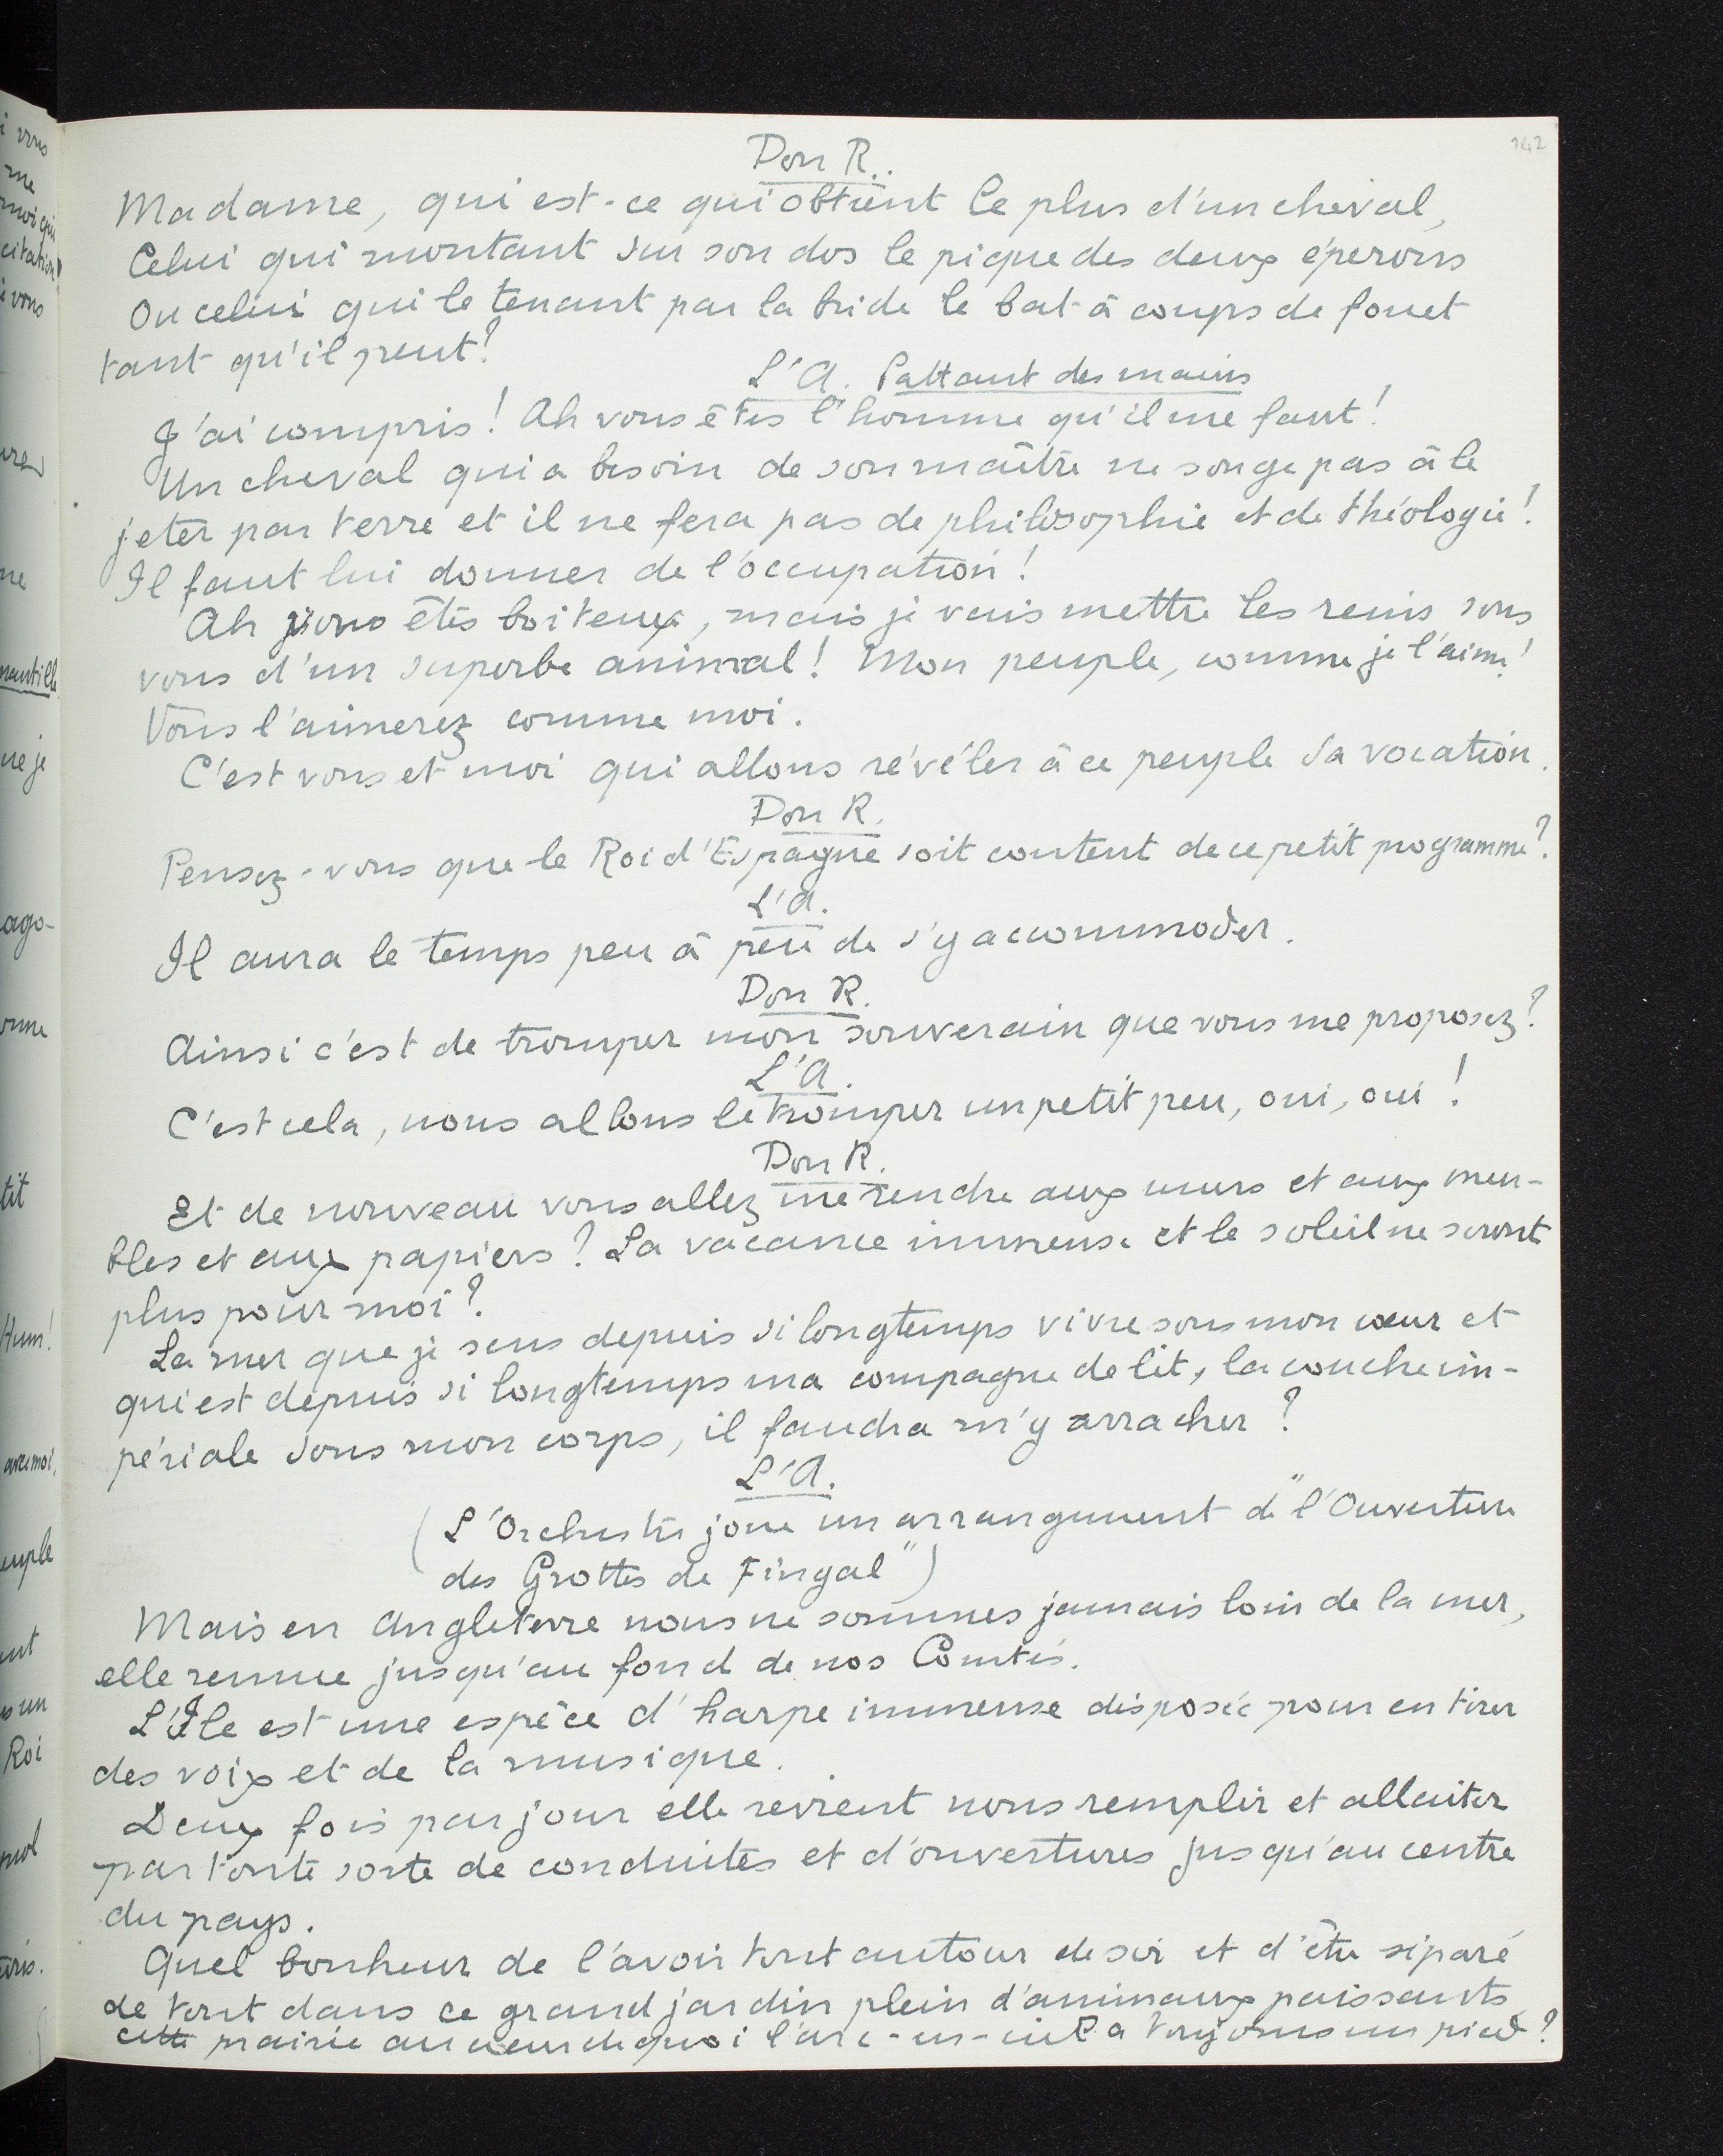 142
Don R..
Madame, qui est-ce qui obtient le plus d'un cheval,
Celui qui montant sur son dos le pique des deux éperons
Ou celui qui le tenant par la bride le bat à coups de fouet
tant qu'il peut?
L'A. battant des mains
J'ai compris! Ah vous êtes l'homme qu'il me faut!
Un cheval qui a besoin de son maître ne songe pas à le
jeter par terre et il ne fera pas de philosophie et de théologie!
Il faut lui donner de l'occupation!
Ah vous êtes boiteux, mais je vais mettre les reins sous
vous d'un superbe animal! Mon peuple, comme je l'aime!
Vous l'aimerez comme moi.
C'est vous et moi qui allons révéler à ce peuple sa vocation.
Don R.
Pensez-vous que le Roi d'Espagne soit content de ce petit programme?
L'A.
Il aura le temps peu à peu de s'y accommoder.
Don R.
Ainsi c'est de tromper mon souverain que vous me proposez?
L'A.
C'est cela, nous allons le tromper un petit peu, oui, oui!
Don R.
Et de nouveau vous allez me rendre aux murs et aux meu-
bles et aux papiers? La vacance immense et le soleil ne seront
plus pour moi?
La mer que je sens depuis si longtemps vivre sous mon cœur et
qui est depuis si longtemps ma compagne de lit, la couche im-
périale sous mon corps, il faudra m'y arracher?
L'A.
(L'Orchestre joue un arrangement de "l'Ouverture
des Grottes de Fingal")
Mais en Angleterre nous ne sommes jamais loin de la mer,
elle remue jusqu'au fond de nos Comtés.
L'Île est une espèce d'harpe immense disposée pour en tirer
des voix et de la musique.
Deux fois par jour elle revient nous remplir et allaiter
par toute sorte de conduites et d'ouvertures jusqu'au centre
du pays.
Quel bonheur de l'avoir tout autour de soi et d'être séparé
de tout dans ce grand jardin plein d'animaux paissants
cette prairie au cœur de quoi l'arc-en-ciel a toujours un pied?